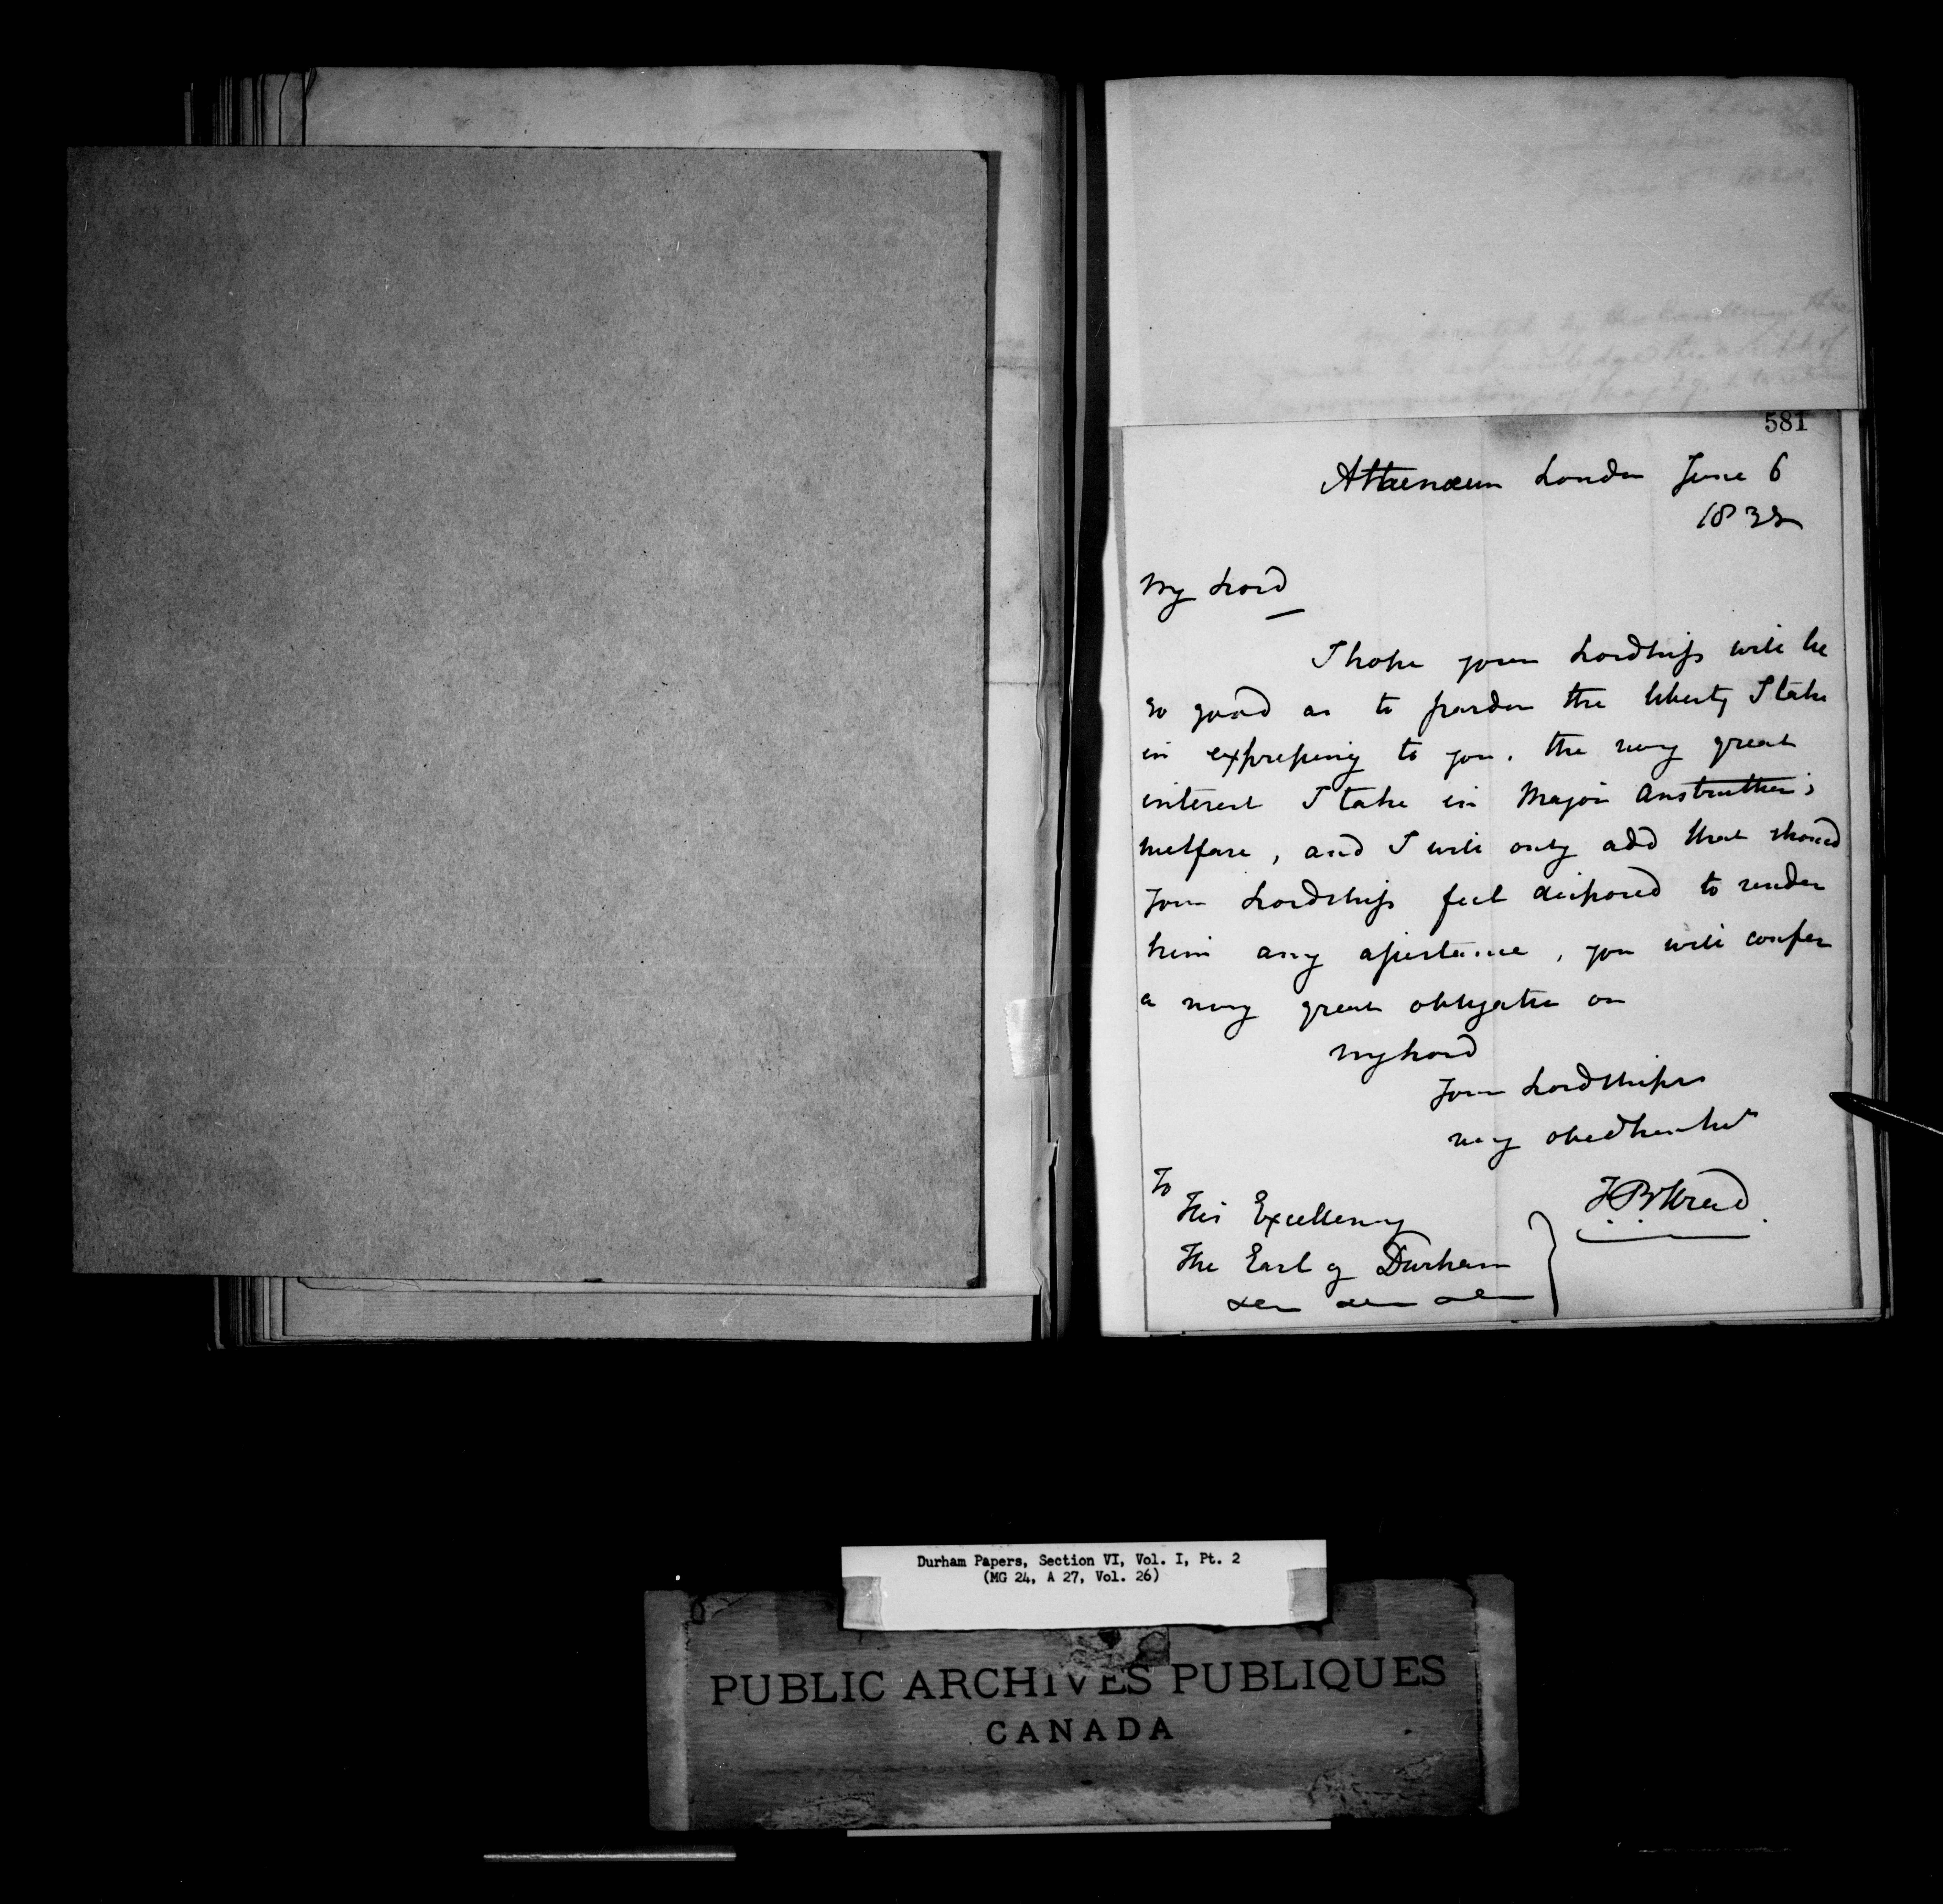 581
Athenæum London June 6
1838
My Lord
I hope your Lordship will be
so good as to pardon the liberty I take
in expressing to you, the very great
interest I take in Major Anstruther's
welfare, and I will only add that should
Your Lordship feel disposed to render
him any assistance, you will confer
a very great obligation on
My Lord
Your Lordships
very obedt
F B Head
To
His Excellency
The Earl of Durham
Durham Papers, Section VI, Vol. I, Pt. 2
(MG 24, A 27, Vol. 26)
PUBLIC ARCHIVES PUBLIQUES
CANADA